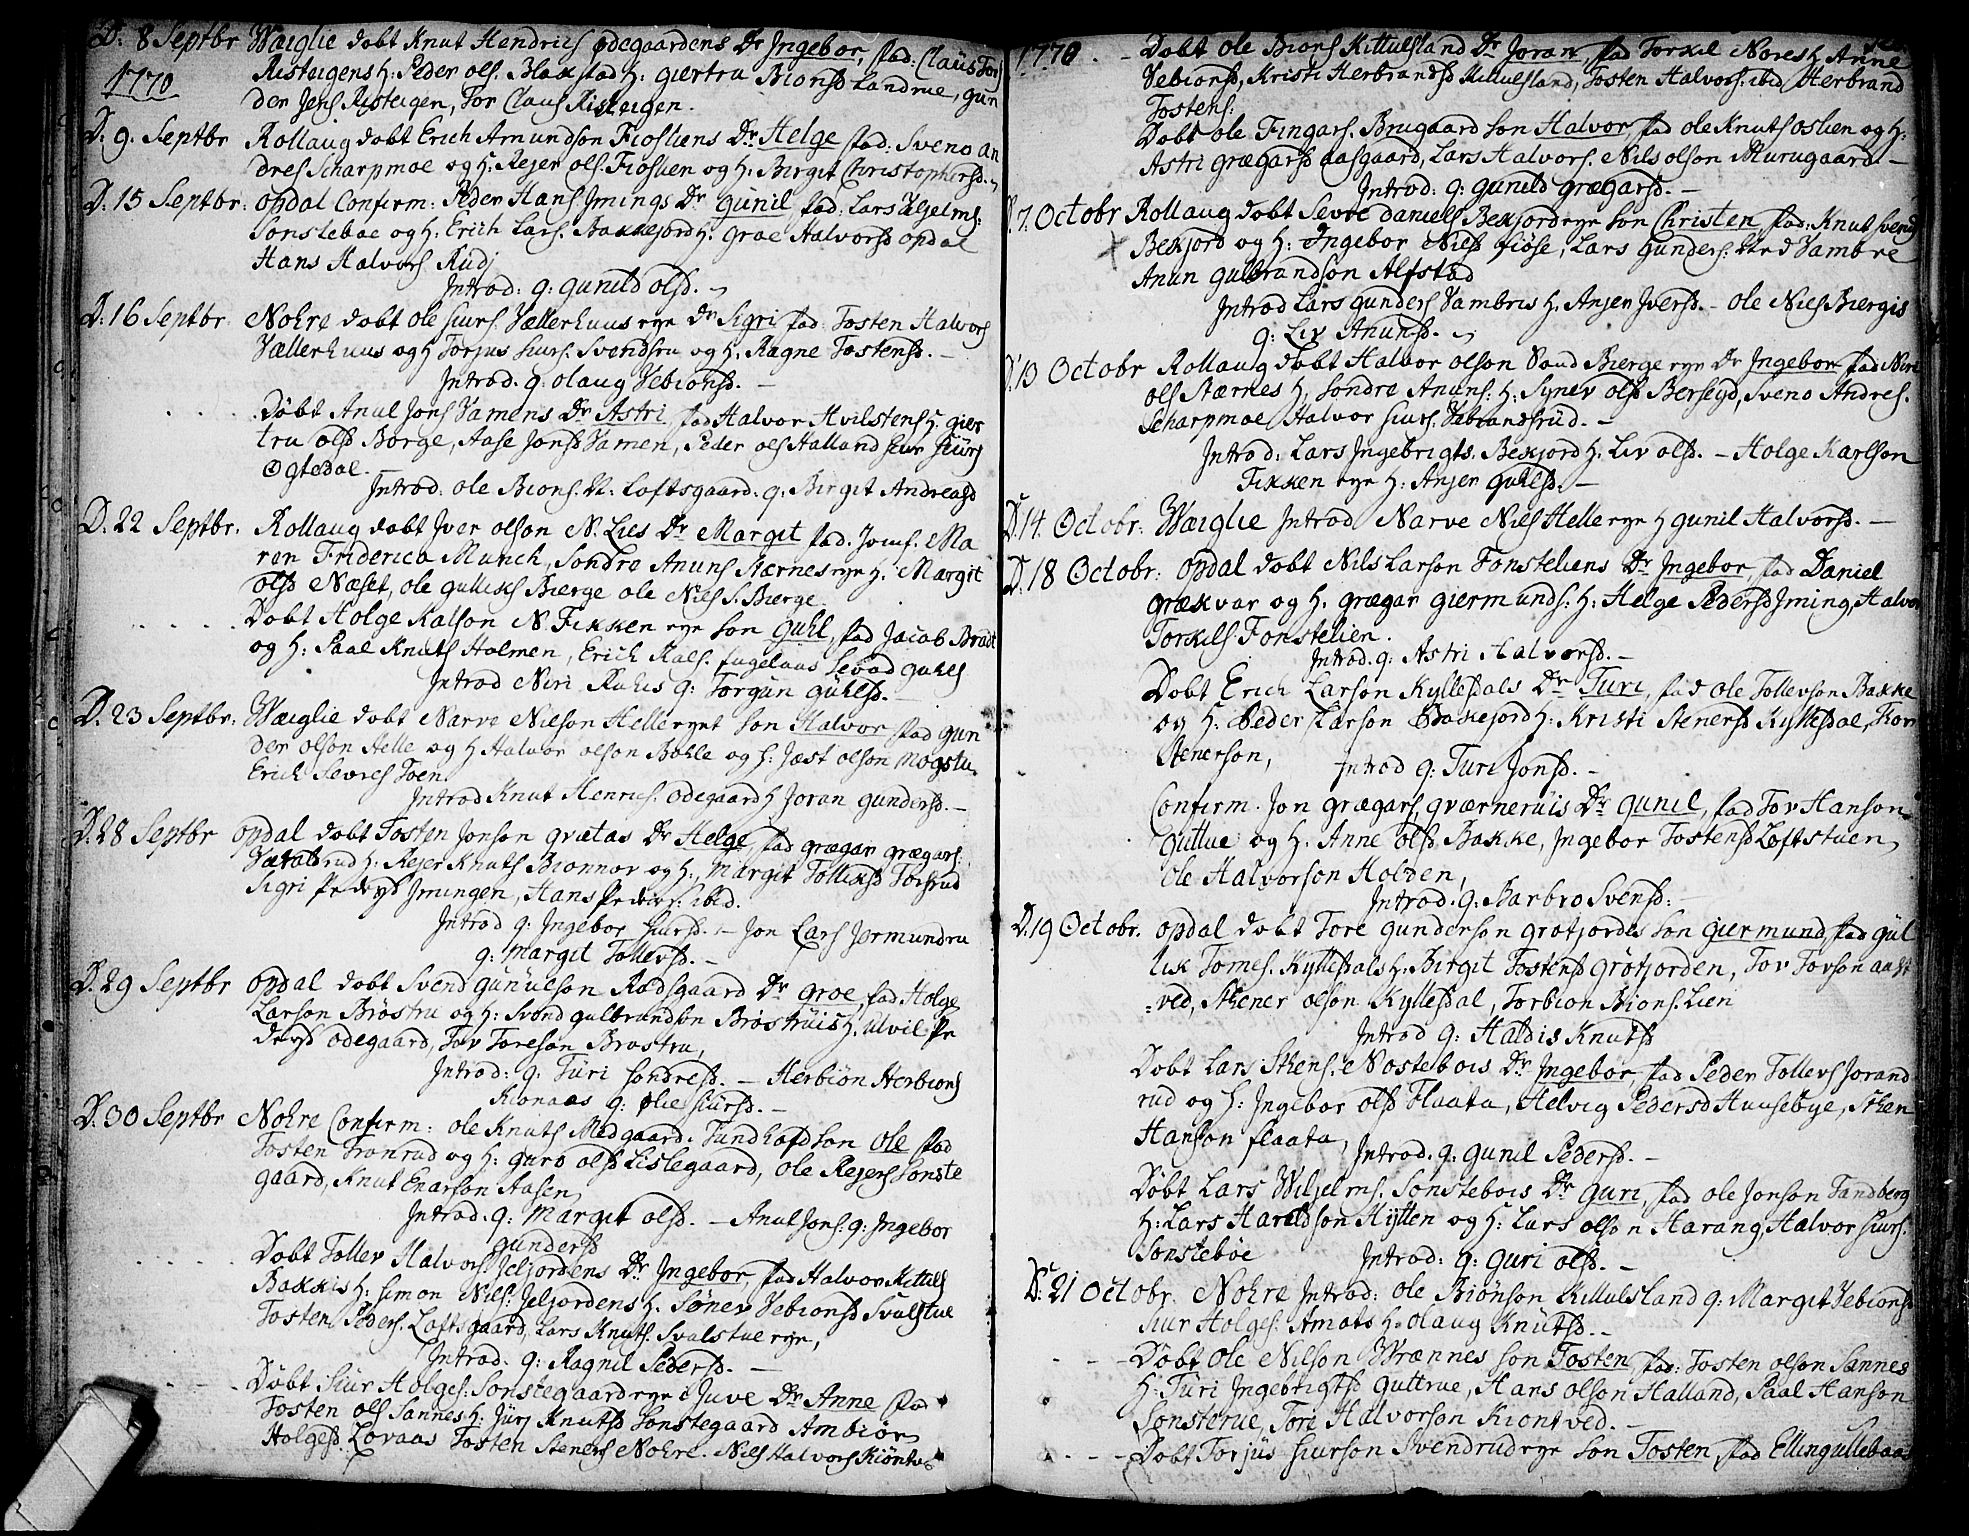 D: 8 Septbr Wæiglie dobt Knut Hendrics Ødegaardens Dr Ingebor, fad: Claus Tor
1770
Risteigens H: Peder ols. Blakstad H: giertru Bionsd Landrue, gun
der Jens Risteigen, Tor Claus Risteigen.
D. 9. Septbr Rollaug dobt Erich Amundson Fiosliens Dr Helge fad: Sveno an
dres Scharpmoe og H. Rejer ols. Fioslien og H: Birgit Christophersd.
D. 15 Septbr: opdal Confirm: Peder Hans Imings Dr gunil fad: Lars Vljelms:
Sonstebae og H: Erich Lars. Bakkejord H. groe Halvorsd opdal
Hans Halvors Rud
Introd: q: gunild olsd.
D. 16 Septbr. Nohre dobt ole siurs. Vællerhuus eye Dr Sigri fad: Tosten Halvors
Vællerhuus og H Torjus siurs. Svendsru og H. Ragne Tostensd.
Introd. q: olaug Vebionsd.
Döbt Anul Jons Vamens Dr Astri fad Halvor Hvilstens H. gier
tru olsd Borge, Aase Jonsd Vamen, Peder ols Halland siur siurs
Ogtedal.
Introd: ole Bions. N: Loftsgaard. q: Birgit Andreasd
D. 22 Septbr. Rollaug dobt Iver olson N. Lies Dr Margit fad. Jomf. Ma
ren Friderica Munch, Sondre Anuns Nærnes eye H. Margit
olsd Næset, ole gulliks Bierge ole Niels S. Bierge.
Dobt Holge Kalson N. Fikken eye son guhl, fad Jacob Bradt
og H: Paal Knuts Holmen, Erich Kals. fugelaas Sevad guhls
Introd Niri Ruhis q: Torgun guhlsd.
D. 23 Septbr: Wæiglie dobt Narve Nielson Helle eyet son Halvor fad gun
der olson Helle og H Halvor olson Bohle og H: Jæst olson Mogstu
Erich Sevres Toen
Introd Knut Henrics. Odegaard H Joran gundersd.
D. 28 Septbr opdal dobt Tosten Jonson grætas Dr Helge fad grægar grægars.
rud H: Rejer Knuts Bionnor og H: Margit Tolliksd Torsrud
Sigri Pedersd Jmingen, Hans Peders. ibid.
Introd q: Ingebor siursd. – Jon Lars Jormundru
q: Margit Tollersd.
D. 29 Septbr opdal dobt Svend gunulson Rodsgaard Dr groe, fad Holge
Larson Bröstru og H: Svend gulbrandson Bröstruis H. Alvil Pe
dersd odegaard, Tov Toreson Brostru,
Introd: q. Türi sondresd. – Herbiön Herbions
Kionaas q: ölie siürsd.
D. 30 Septbr Nohre Confirm: ole Knuts Medgaard. Tundhofd son ole fad
Tosten Tronrud og H: guro olsd Lislegaard, ole Rejers Sonste
gaard, Knut Enarson Aasen
Introd. q: Margit olsd. – Anut Jons. q: Ingebor
gundersd
Dobt Tollev Halvors Jeljordens Dr Ingebor fad Halvor Kittils
Bakkis H: simon Niels. Jeljordens H. Sönev Vebionsd Svalstue
Tosten Peders. Loftsgaard, Lars Knuts. Svalstue eye,
Introd. q: Ragnil Pedersd.
Döbt Siur Holges. Sonstegaard eye i Juve Dr Anne fad
Tosten ols Sannes H: Jürj Knutsd Sonstegaard Ambiör
Holgesd. Lovaas Tosten Steners Nohre. Niels Halvors Kiöntv
1770 Dobt ole Bions Kittulsland Dr Joran fad Torkil Nores H Anne
Vebionsd, Kristi Herbrandsd Kittulsland, Tosten Halvors: ibid Herbrand
Tostens:
Dobt ole Fingars. Brugaard son Halvor fad ole Knuts oslien og H:
Astri grægarsd aasgaard, Lars Halvors. Nils olson Murugaard
Introd: q: gunild grægarsd.
7. Octobr Rollaug dobt Sevre Daniels Bekjord eye son Christen fad: Knut svends
Bekjord og H: Ingebor Nielsd Fiöse, Lars gunders: Vambre
Anun gulbrandson Alfstad
Introd Lars gunders Vambris H. Anjer Iversd. – ole Niels Biergis
q: Liv Anunsd.
D. 13 Octobr Rollaug dobt Halvor olson Vand Bierge eye Dr Ingebor fad Niri
ols Nærnes H. Sondre Anuns: H: Synev olsd Berseyd, Sveno Andres.
Scharpmoe Halvor siurs. Vebrandsrüd.
Introd: Lars Ingebrigts. Bekjord H. Liv olsd. – Holge Karlson
Fikken eye H: Anjer guhlsd.
D. 14. Octobr: Wæiglie Introd Narve Niels Helle eye H gunil Halvorsd.
D. 18 Octobr: opdal dobt Nils Larson Fonsteliens Dr Ingebor, fad Daniel
grækvar og H. grægar giermunds: H: Helge Pedersd Jming, Halvor
Torkils Fonstelien.
Introd. q: Astri Halvorsd.
Dobt Erich Larson Kyllesdals Dr Turi, fad ole Tollevson Bakke
og H: Peder Larson Bakkejord H: Kristi Stenersd Kyllesdal, Tor
Stenerson, Introd q: Turi Jonsd.
Confirm. Jon grægars gværneruis Dr gunil, fad Tov Hanson
guttue og H. Anne olsd Bakke, Ingebor Tostensd Loftstuen
ole Halvorson Holden,
Introd. q: Barbro Svensd:
D. 19 Octobr. opdal dobt Tore gunderson grotjordes son giermund, fad gul
lik Tomes. Kyllesdals H: Birgit Tostensd grötjorden, Tov Tovson aast
ved, Stener olson Kyllesdal, Torbion Bions. Lien
Introd q: Haldis Knutsd
Dobt Lars Stens. Nostebois Dr Ingebor, fad Peder Tollevs Jorand
rud og H: Ingebor olsd Flaata, Helvig Pedersd Huusebye, Sten
Hanson flaata, Introd. q: gunil Pedersd.
Döbt Lars Wiljelms. Sonstebois Dr Guri, fad ole Jonson Tandberg
H: Lars Haroldson Hytten og H: Lars olson Harang, Halvor siurs.
Sonsteböe Introd: q: guri olsd.
D. 21 Octobr. Nohre Introd: ole Biönson Kittulsland q: Margit Vebionsd
siur Holges. Amots H: olaug Knutsd.
Döbt ole Nilson Wrænnes son Tosten, fad: Tosten olson Sannes
H: Türi Ingebrigtsd Guttrue, Hans olson Halland, Paal Hanson
Sonsterue, Tore Halvorson Kiontved.
Dobt Torjüs siurson Svendrud eye son Tosten, fad Ellingullebaas